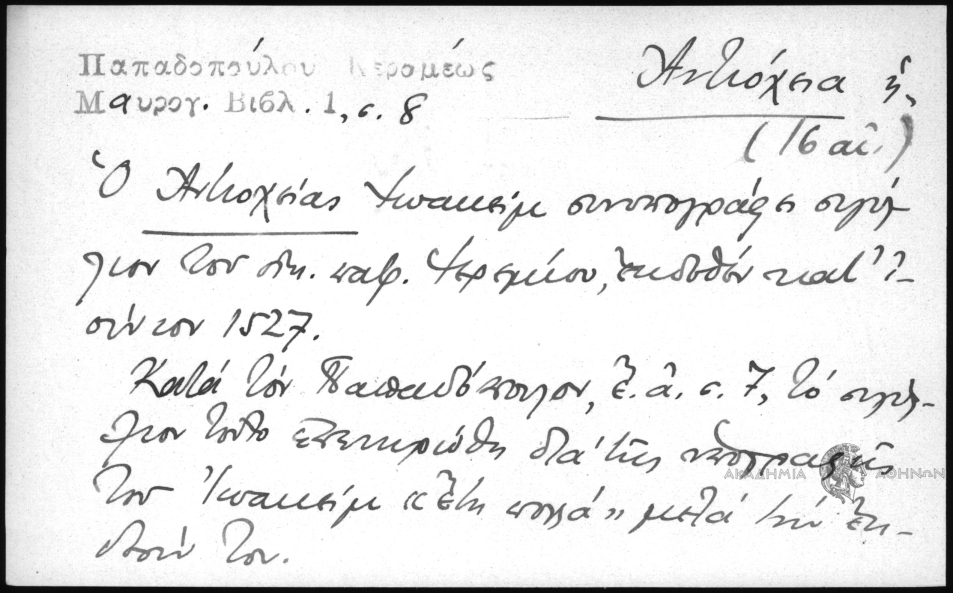 Παπαδοπούλου Κεραμέως
Μαυρογ. Βιβλ. 1, σ. 8
Ἀντιόχεια ἡ,
(16 αἰ.)
Ὁ Ἀντιοχείας Ἰωακεὶμ συνυπογράφει σιγίλ-
λιον τοῦ οἰκ. πατρ. Ἱερεμίου, ἐκδοθὲν κατ' Ἰ-
ούνιον 1527.
Κατά τόν Παπαδόπουλον, ἔ.ἀ. σ. 7, τό σιγίλ-
λιον τοῦτο ἐπεκυρώθη διά τῆς ὑπογραφῆς
τοῦ Ἰωακείμ «ἔτη πολλά» μετά τήν ἔκ-
δοσίν του.
ΑΚΑΔΗΜΙΑ ΑΘΗΝΩΝ